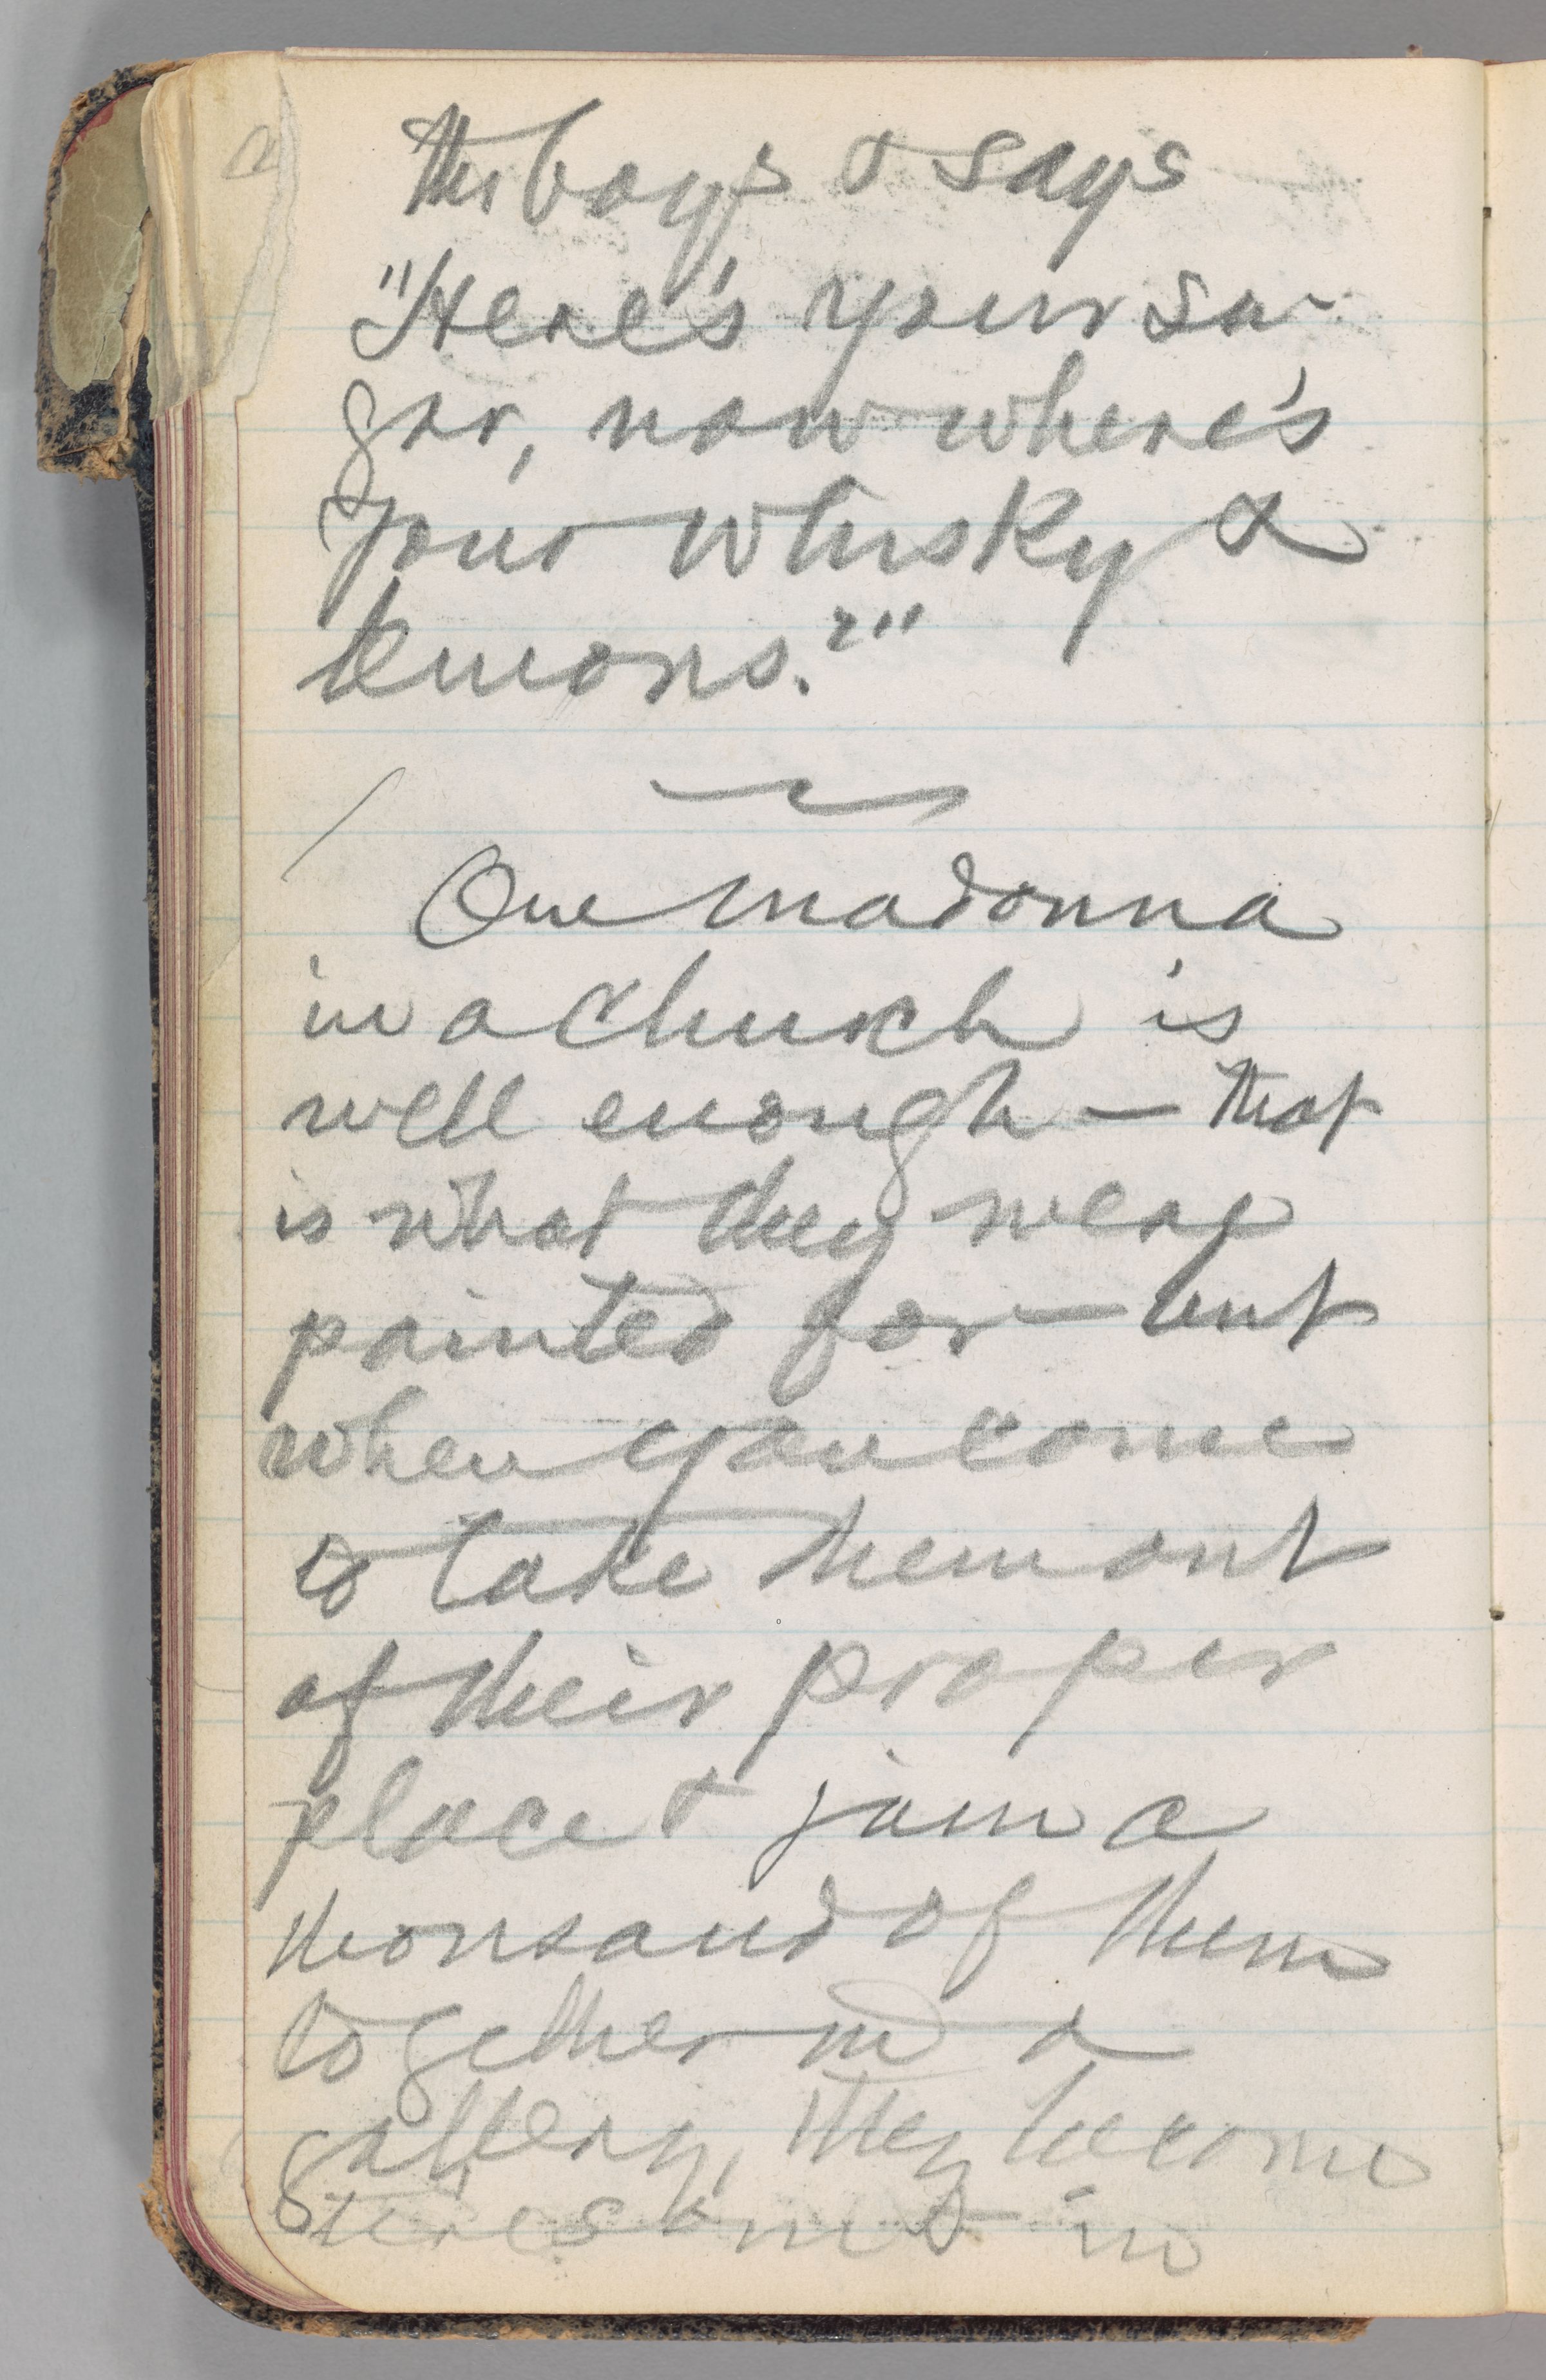 the boys & says
"Here's your su-
gar, now where's
your whisky &
lemons?"
One madonna
in a church is
well enough — that
is what they were
painted for — but
when you come
to take them out
of their proper
place & jam a
thousand of them
together in a
gallery, they become
tiresome & in